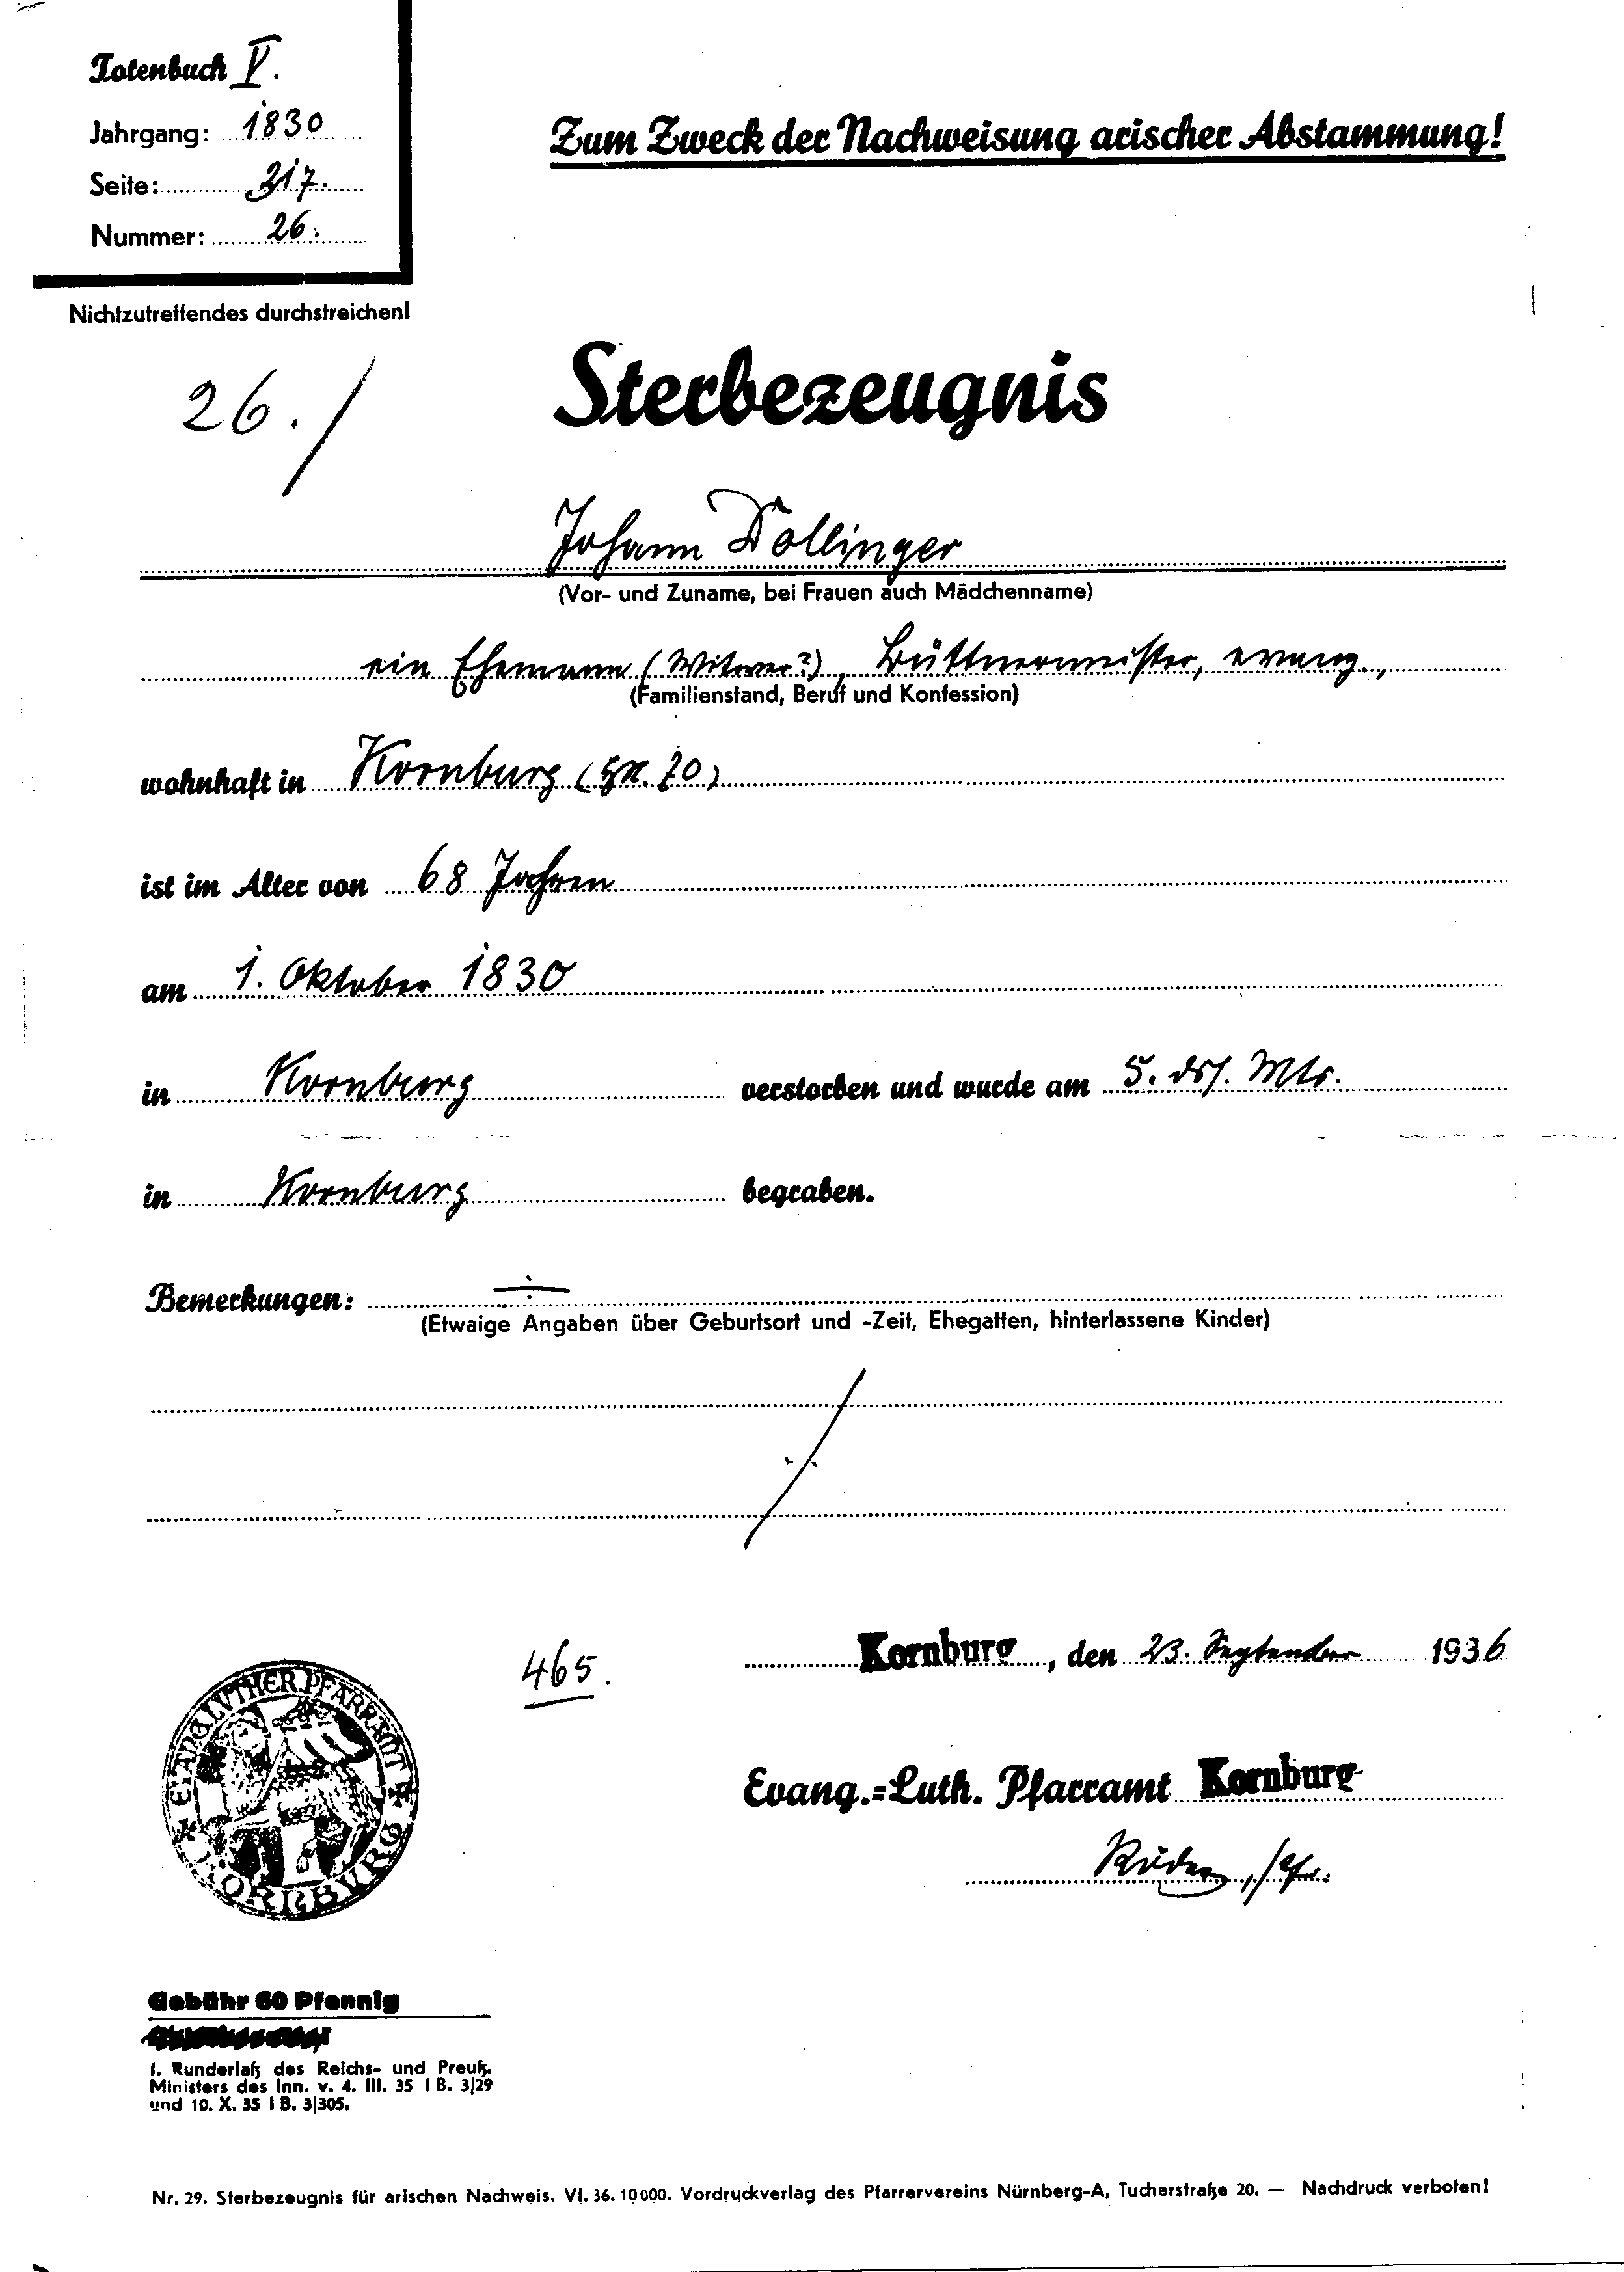 Totenbuch V.
Jahrgang: 1830
Seite: 217.
Nummer: 26.
Nichtzutreffendes durchstreichen!
Zum Zweck der Nachweisung arischer Abstammung!
26./
Sterbezeugnis
Johann Dollinger
(Vor- und Zuname, bei Frauen auch Mädchenname)
ein Ehemann (Witwer?), Büttnermeister, evang.,
(Familienstand, Beruf und Konfession)
wohnhaft in Kornburg (Hs. 70)
ist im Alter von 68 Jahren
am 1. Oktober 1830
in Kornburg verstorben und wurde am 5. ds. Mts.
in Kornburg begraben.
Bemerkungen: ÷
(Etwaige Angaben über Geburtsort und -Zeit, Ehegatten, hinterlassene Kinder)
465.
Kornburg, den 23. September 1936
EVANG. LUTHER. PFARRAMT KORNBURG
Evang.=Luth. Pfarramt Kornburg
Gebühr 60 Pfennig
f. Runderlaß des Reichs- und Preuß.
Ministers des Inn. v. 4. III. 35 I B. 3/29
und 10. X. 35 I B. 3/305.
Nr. 29. Sterbezeugnis für arischen Nachweis. VI. 36. 10000. Vordruckverlag des Pfarrervereins Nürnberg-A, Tucherstraße 20. — Nachdruck verboten!